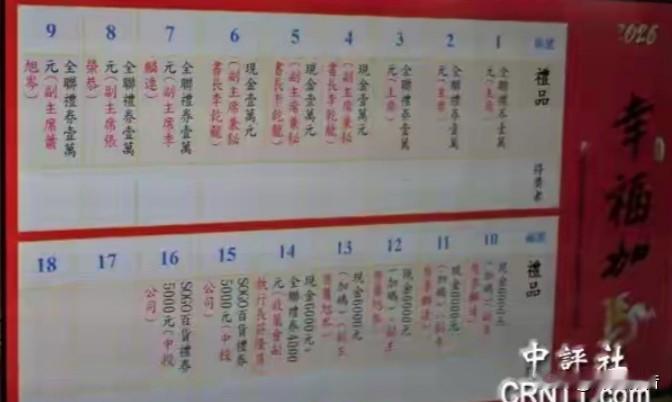 2026
幸福加馬
編號
禮品
得獎者
1
全聯禮券壹萬
元(主席)
2
全聯禮券壹萬
元(主席)
3
全聯禮券壹萬
元(主席)
4
現金壹萬元
(副主席兼秘
書長李乾龍)
5
現金壹萬元
(副主席兼秘
書長李乾龍)
6
現金壹萬元
(副主席兼秘
書長李乾龍)
7
全聯禮券壹萬
元(副主席季
麟連)
8
全聯禮券壹萬
元(副主席張
榮恭)
9
全聯禮券壹萬
元(副主席蕭
旭岑)
編號
禮品
10
現金6000元
(加碼)
11
現金6000元
(加碼)
12
現金6000元
(加碼)
13
現金6000元
(加碼)
14
現金6000元
全聯禮券4000
元
15
SOGO百貨禮券
5000元(中投
公司)
16
SOGO百貨禮券
5000元(中投
公司)
17
18
中評社
CRNTT.com